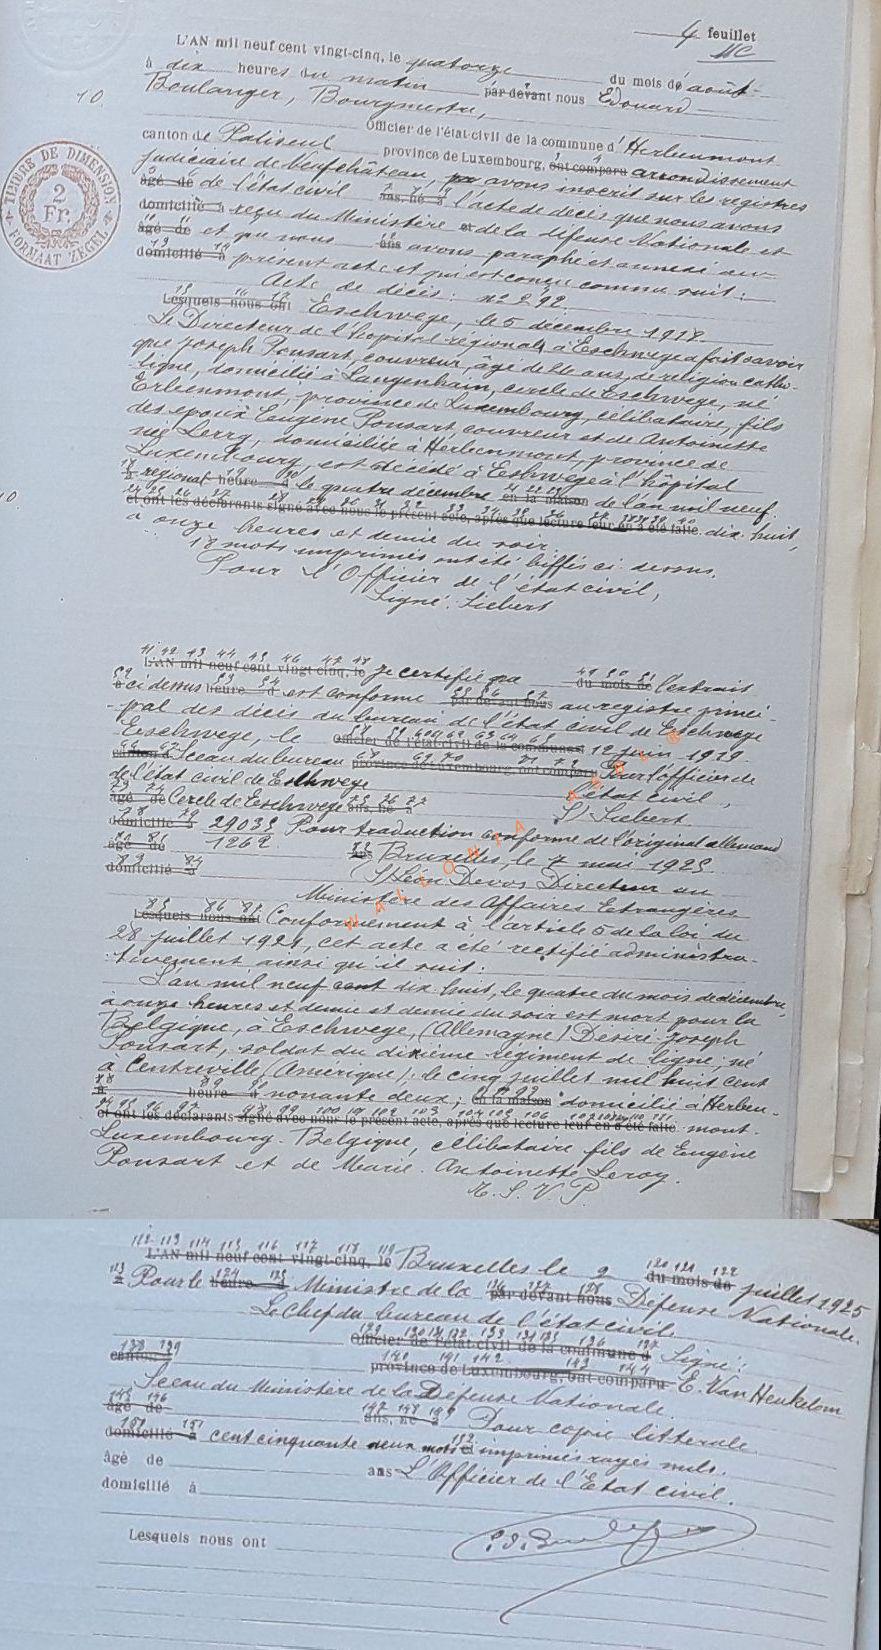 4 feuillet
L'AN mil neuf cent vingt-cinq, le quatorze du mois de août
à dix heures du matin par devant nous Edouard
Boulanger, Bourgmestre,
10.
Officier de l'état-civil de la commune d'Herbeumont
canton de Paliseul province de Luxembourg, ont comparu arrondissement
judiciaire de Neufchâteau, avons inscrit sur les registres
âgé de de l'état civil ans, né à l'acte de décès que nous avons
domicilié à reçu du Ministère de la défense Nationale et
âgé de et que nous ans avons paraphé et annexé au
domicilié à présent acte et qui est conçu comme suit :
Acte de décès : n° 292.
Lesquels nous ont Eschwege, le 5 décembre 1918.
Le Directeur de l'hôpital régional à Eschwege a fait savoir
que Joseph Ponsart, couvreur, âgé de 26 ans, de religion catho-
lique, domicilié à Langenhain, cercle de Eschwege, né
Erbeumont, province de Luxembourg, célibataire, fils
des époux Eugène Ponsart couvreur et de Antoinette
née Leroy, domiciliée à Herbeumont, province de
Luxembourg, est décédé à Eschwege à l'hôpital
régional heure à le quatre décembre en la maison de l'an mil neuf
et ont les déclarants signé avec nous le présent acte, après que lecture leur en a été faite. dix-huit,
à onze heures et demie du soir.
18 mots imprimés ont été biffés ci-dessus.
Pour l'Officier de l'état civil,
Signé : Siebert
TIMBRE DE DIMENSION
2
Fr.
FORMAAT ZEGEL
L'AN mil neuf cent vingt-cinq, le Je certifie que du mois de l'extrait
à ci dessus heure à est conforme par devant nous au registre princi-
-pal des décès du bureau de l'état civil de Eschwege
Eschwege, le Officier de l'état-civil de la commune d 12 juin 1919.
canton d Sceau du bureau province de Luxembourg, ont comparu Pour l'officier de
de l'état civil de Eschwege l'état civil,
âgé de Cercle de Eschwege ans, né à S/ Siebert
domicilié à 29035 Pour traduction conforme de l'original allemand
âgé de 1262 ans Bruxelles, le 7 mai 1925
domicilié à S/ Léon Devos Directeur au
Ministère des Affaires Etrangères
Lesquels nous ont Conformément à l'article 5 de la loi du
28 juillet 1921, cet acte a été rectifié administra-
tivement ainsi qu'il suit :
L'an mil neuf cent dix huit, le quatre du mois de décembre,
à onze heures et demie du soir est mort pour la
Belgique, à Eschwege, (Allemagne) Désiré-Joseph
Ponsart, soldat du dixième régiment de ligne ; né
à Centreville (Amérique), le cinq juillet mil huit cent
à heure à nonante deux, en la maison domicilié à Herbeu-
et ont les déclarants signé avec nous le présent acte, après que lecture leur en a été faite mont.
Luxembourg. Belgique, célibataire fils de Eugène
Ponsart et de Marie-Antoinette Leroy.
T. S. V. P.
WALLONIA ASBL ®
112 113 114 115 116 117 118 119
L'AN mil neuf cent vingt-cinq, le Bruxelles le 2 du mois de juillet 1925
à Pour le heure à Ministre de la par devant nous Défense Nationale.
Le Chef du bureau de l'état civil.
Officier de l'état-civil de la commune d Signé :
canton d province de Luxembourg, ont comparu E. Van Heukelom
Sceau du Ministère de la Défense Nationale.
âgé de ans, né à Pour copie littérale
domicilié à cent cinquante deux mots imprimés rayés nuls.
âgé de ans L'Officier de l'Etat civil.
domicilié à
Lesquels nous ont